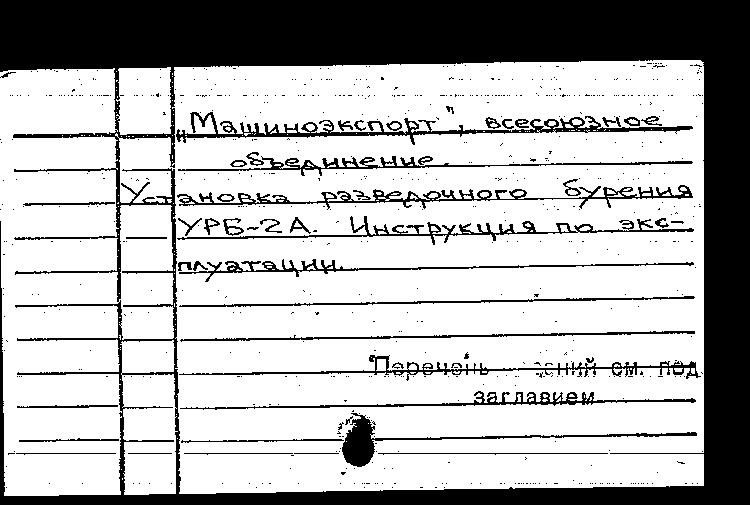 „Машиноэкспорт", всесоюзное
объединение.
Установка разведочного бурения
УРБ-2А. Инструкция по экс-
плуатации.
"Перечень см. под
заглавием